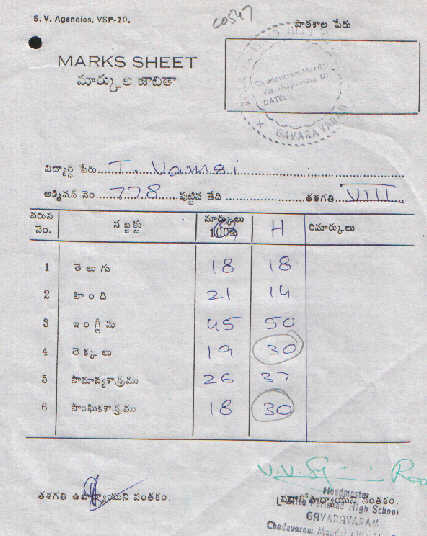 S. V. Agencies, VSP-20.
పాఠశాల పేరు
MARKS SHEET
మార్కుల జాబితా
GAVARAVARAM
విద్యార్థి పేరు T. Vamsi
అడ్మిషన్ నెం. 778 పుట్టిన తేది తరగతి VIII
వరుస నెం. సబ్జక్టు మార్కులు H రిమార్కులు
1 తెలుగు 18 18
2 హింది 21 14
3 ఇంగ్లీషు 45 50
4 లెక్కలు 19 30
5 సామాన్యశాస్త్రము 26 37
6 సాంఘికశాస్త్రము 18 30
తరగతి ఉపాధ్యాయుని సంతకం.
Headmaster
High School